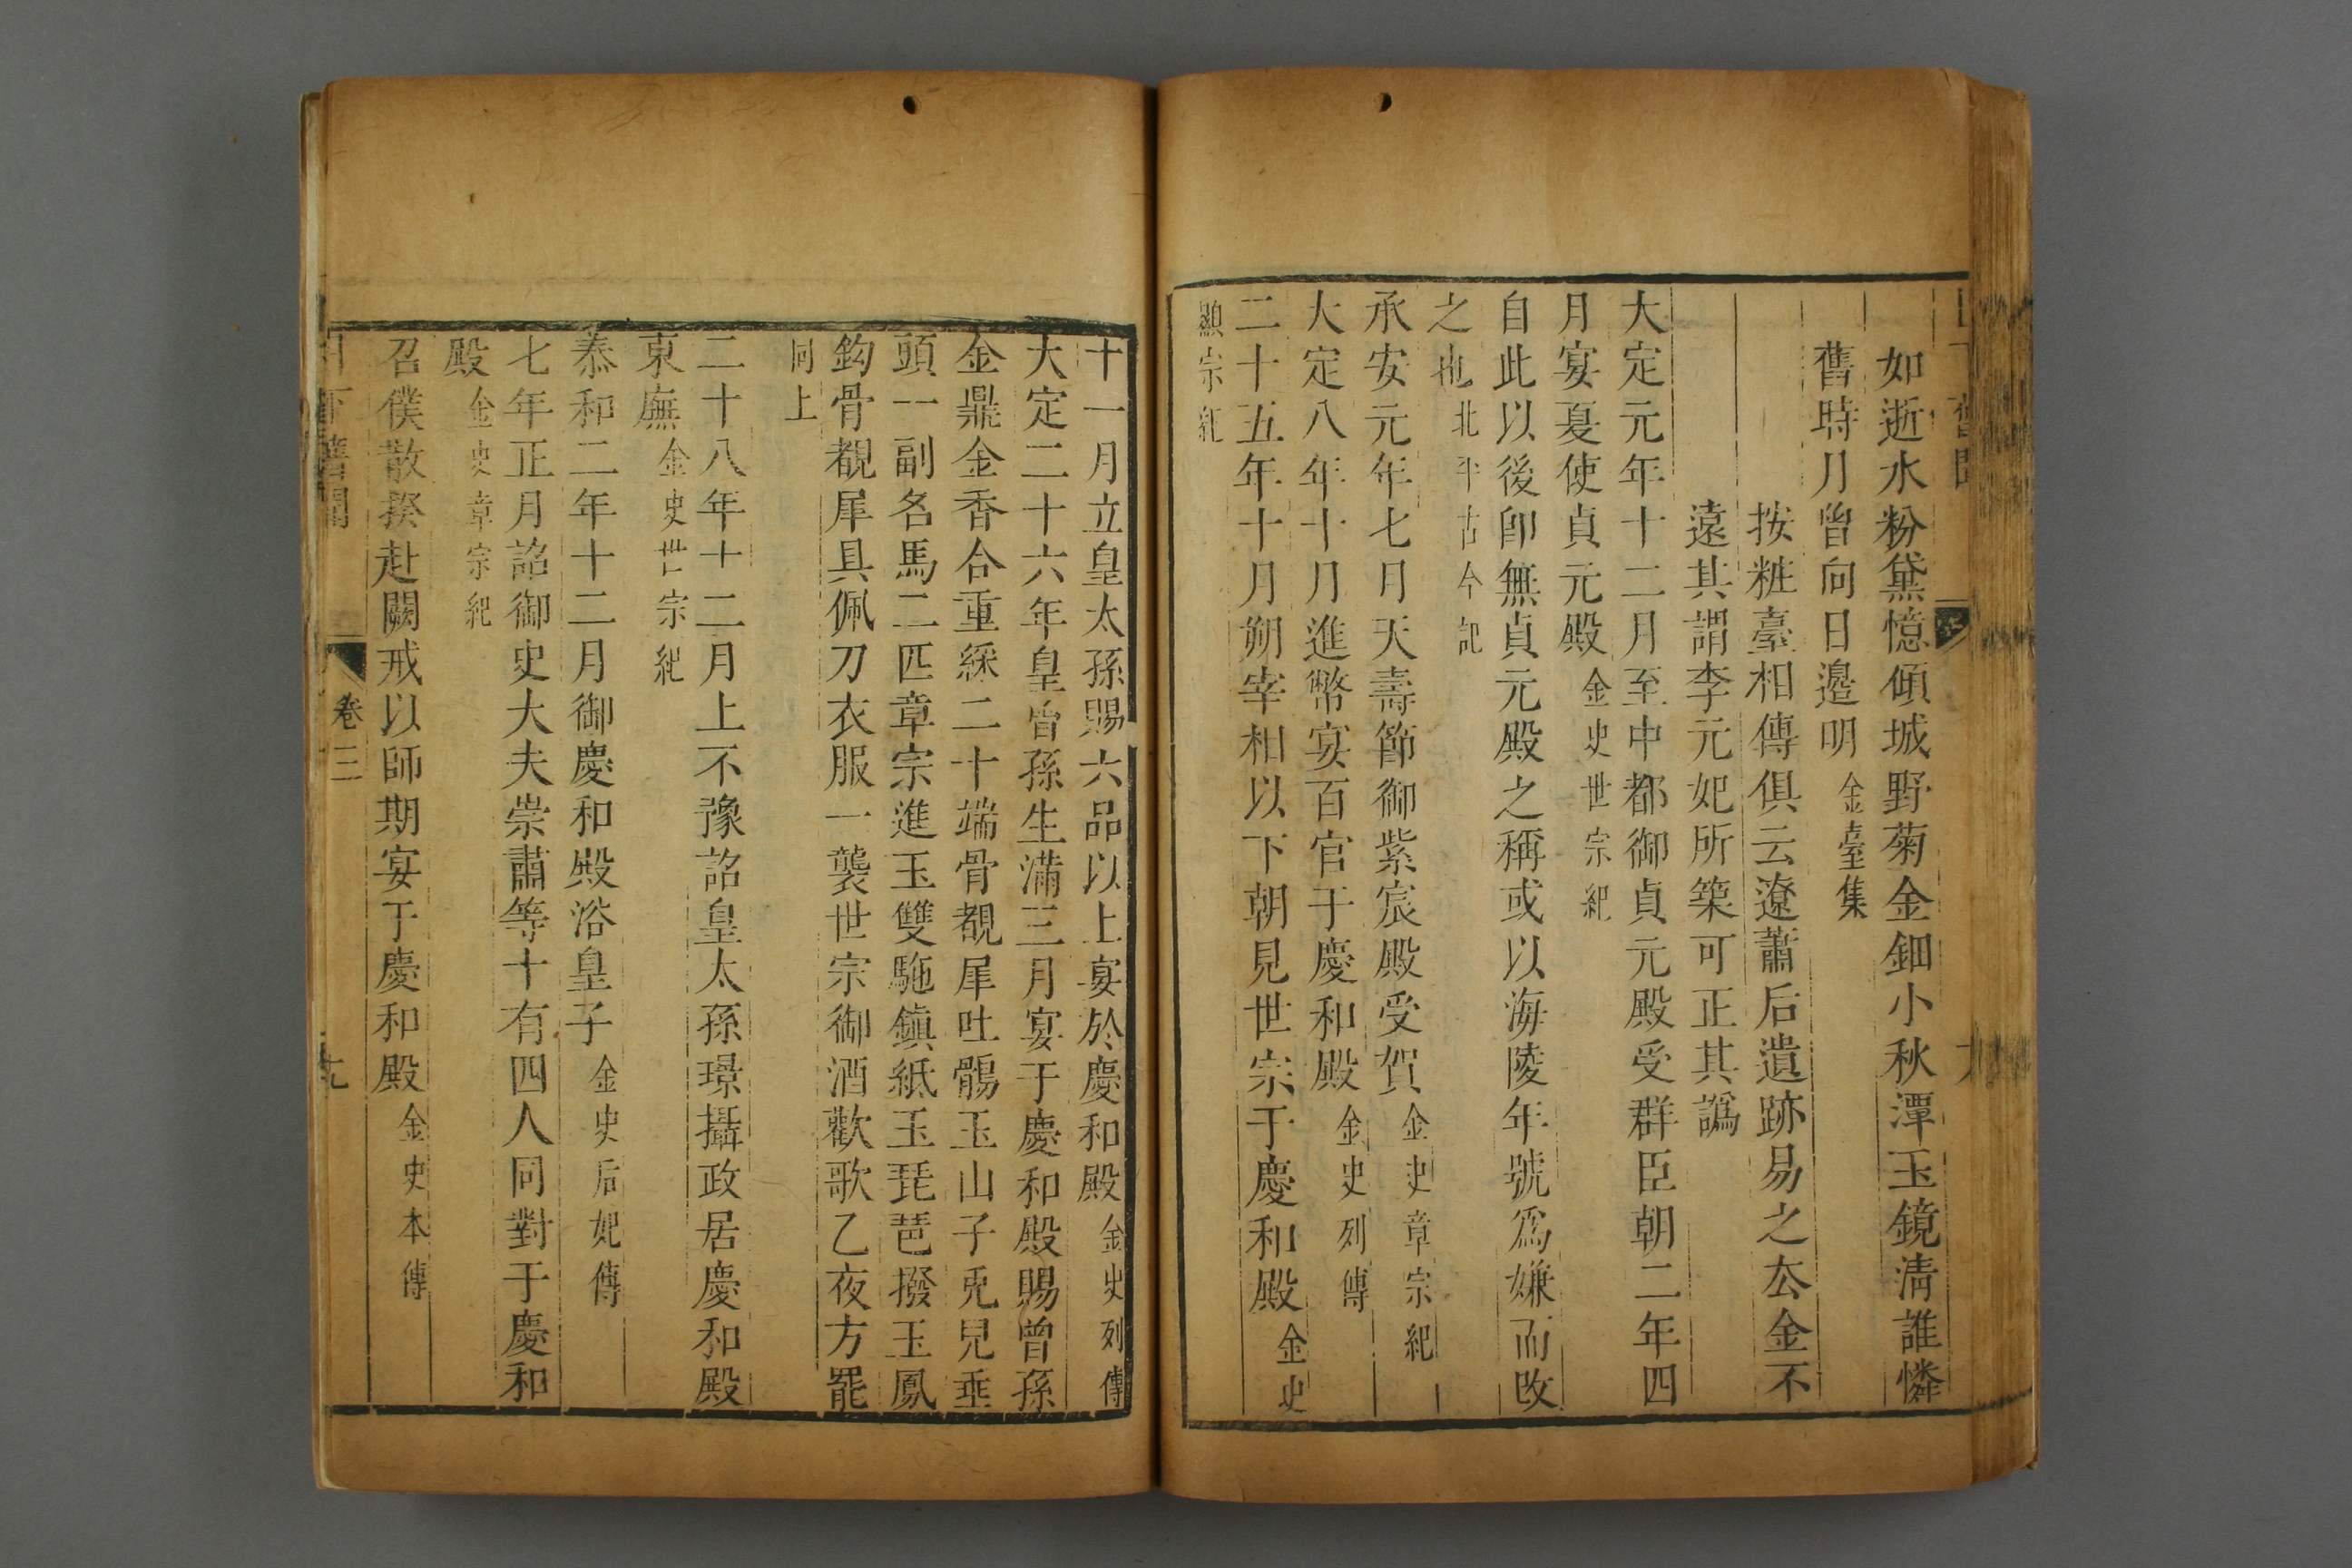 如逝水粉黛憶傾城野菊金鈿小秋潭玉鏡淸誰憐
舊時月曾向日邊明金臺集
按粧臺相傳俱云遼蕭后遺跡易之去金不
遠其謂李元妃所築可正其譌
大定元年十二月至中都御貞元殿受群臣朝二年四
月宴夏使貞元殿金史世宗紀
自此以後卽無貞元殿之稱或以海陵年號爲嫌而改
之也北平古今記
承安元年七月天壽節御紫宸殿受賀金史章宗紀
大定八年十月進幣宴百官于慶和殿金史列傳
二十五年十月朔宰相以下朝見世宗于慶和殿金史
顯宗紀
十一月立皇太孫賜六品以上宴於慶和殿金史列傳
大定二十六年皇曾孫生滿三月宴于慶和殿賜曾孫
金鼎金香合重綵二十端骨覩犀吐鶻玉山子兎兒垂
頭一副名馬二匹章宗進玉雙駞鎭紙玉琵琶撥玉鳳
鈎骨覩犀具佩刀衣服一襲世宗御酒歡歌乙夜方罷
同上
二十八年十二月上不豫詔皇太孫璟攝政居慶和殿
東廡金史世宗紀
泰和二年十二月御慶和殿浴皇子金史后妃傳
七年正月詔御史大夫崇肅等十有四人同對于慶和
殿金史章宗紀
召僕散揆赴闕戒以師期宴于慶和殿金史本傳
日下舊聞
卷三
七